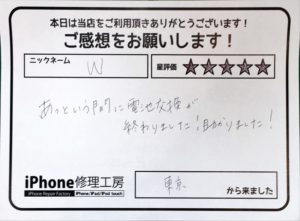 本日は当店をご利用頂きありがとうございます！
ご感想をお願いします！
ニックネーム W 星評価 ★★★★★
あっという間に電池交換が
終わりました！助かりました！
iPhone修理工房
iPhone Repair Factory iPhone/iPad/iPod touch
東京 から来ました